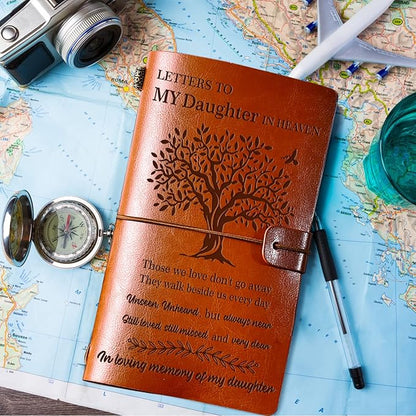 LETTERS TO
MY Daughter IN HEAVEN
Those we love don't go away
They walk beside us every day
Unseen, Unheard, but always near
Still loved, still missed, and very dear
In loving memory of my daughter